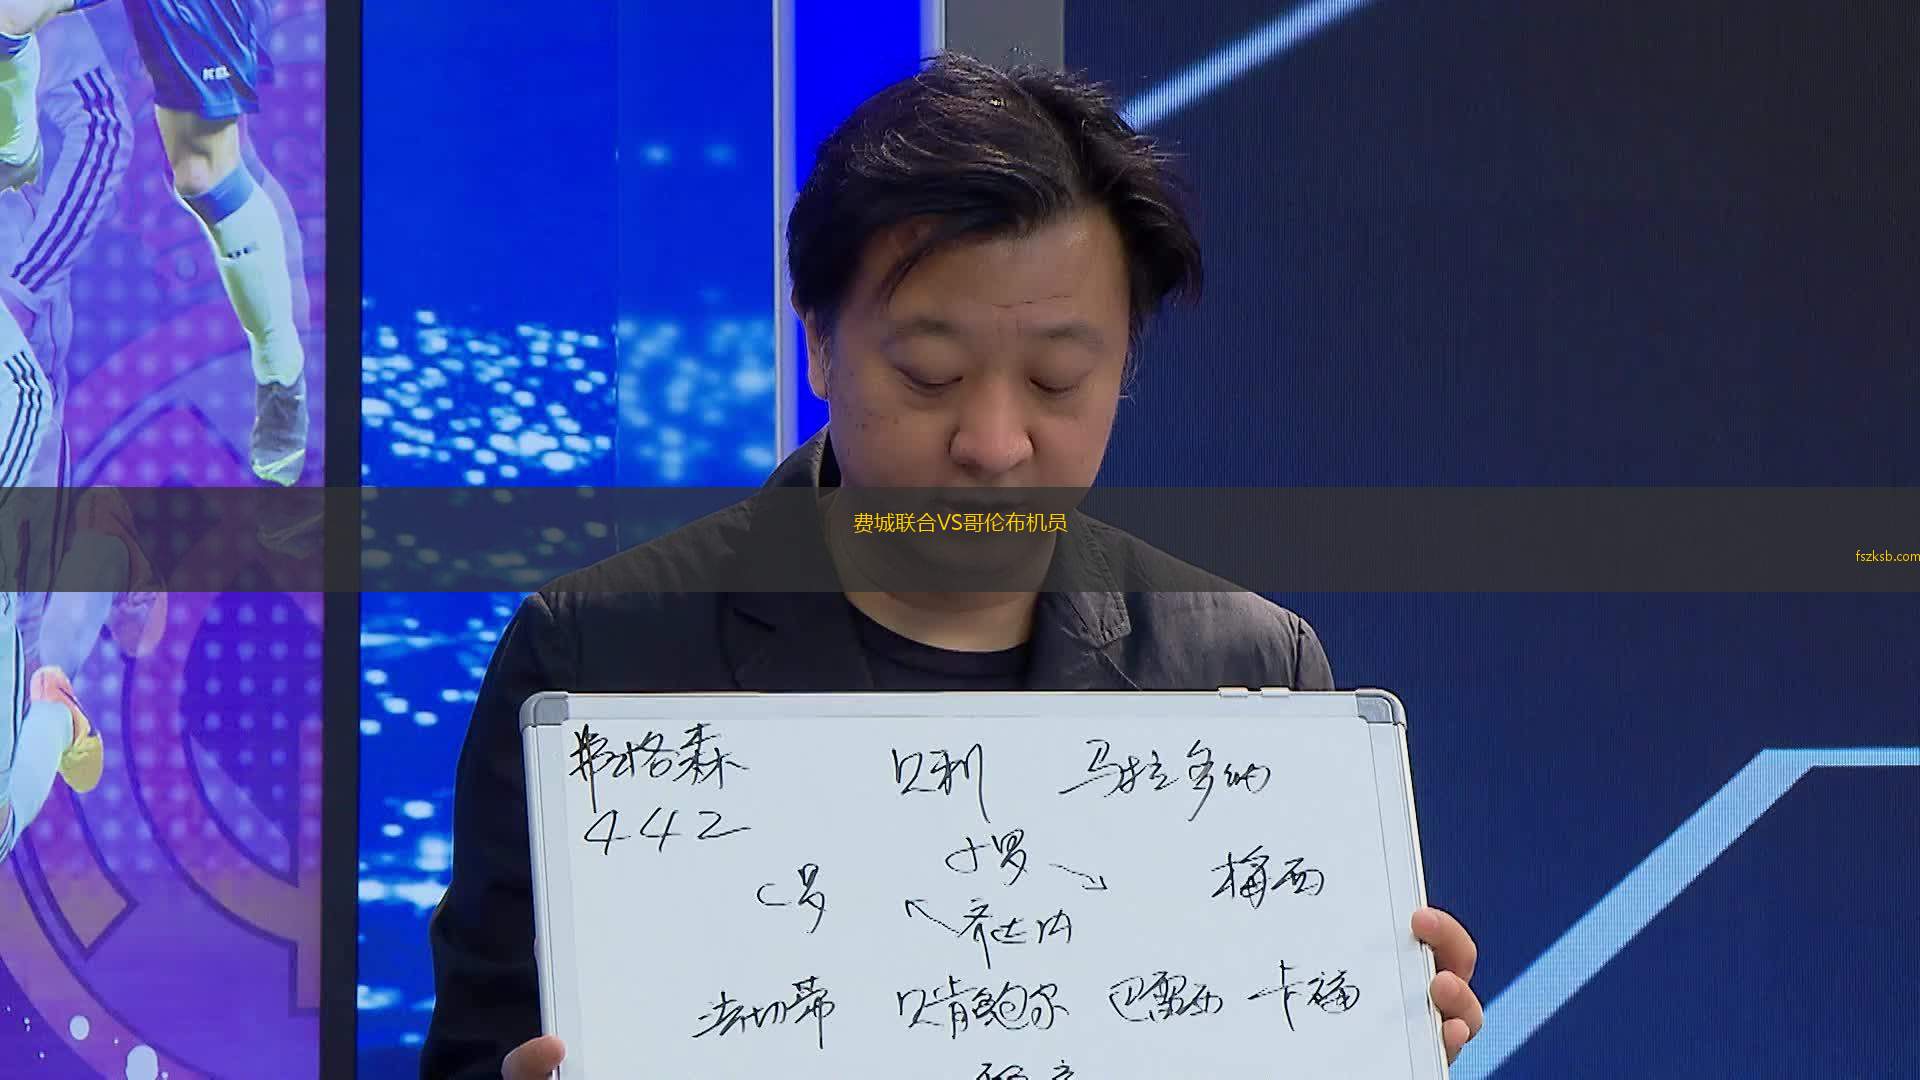 KEL
费城联合VS哥伦布机员
fszksb.com
弗格森 贝利 马拉多纳
442
小罗
C罗 梅西
齐达内
法切蒂 贝肯鲍尔 巴雷西 卡福